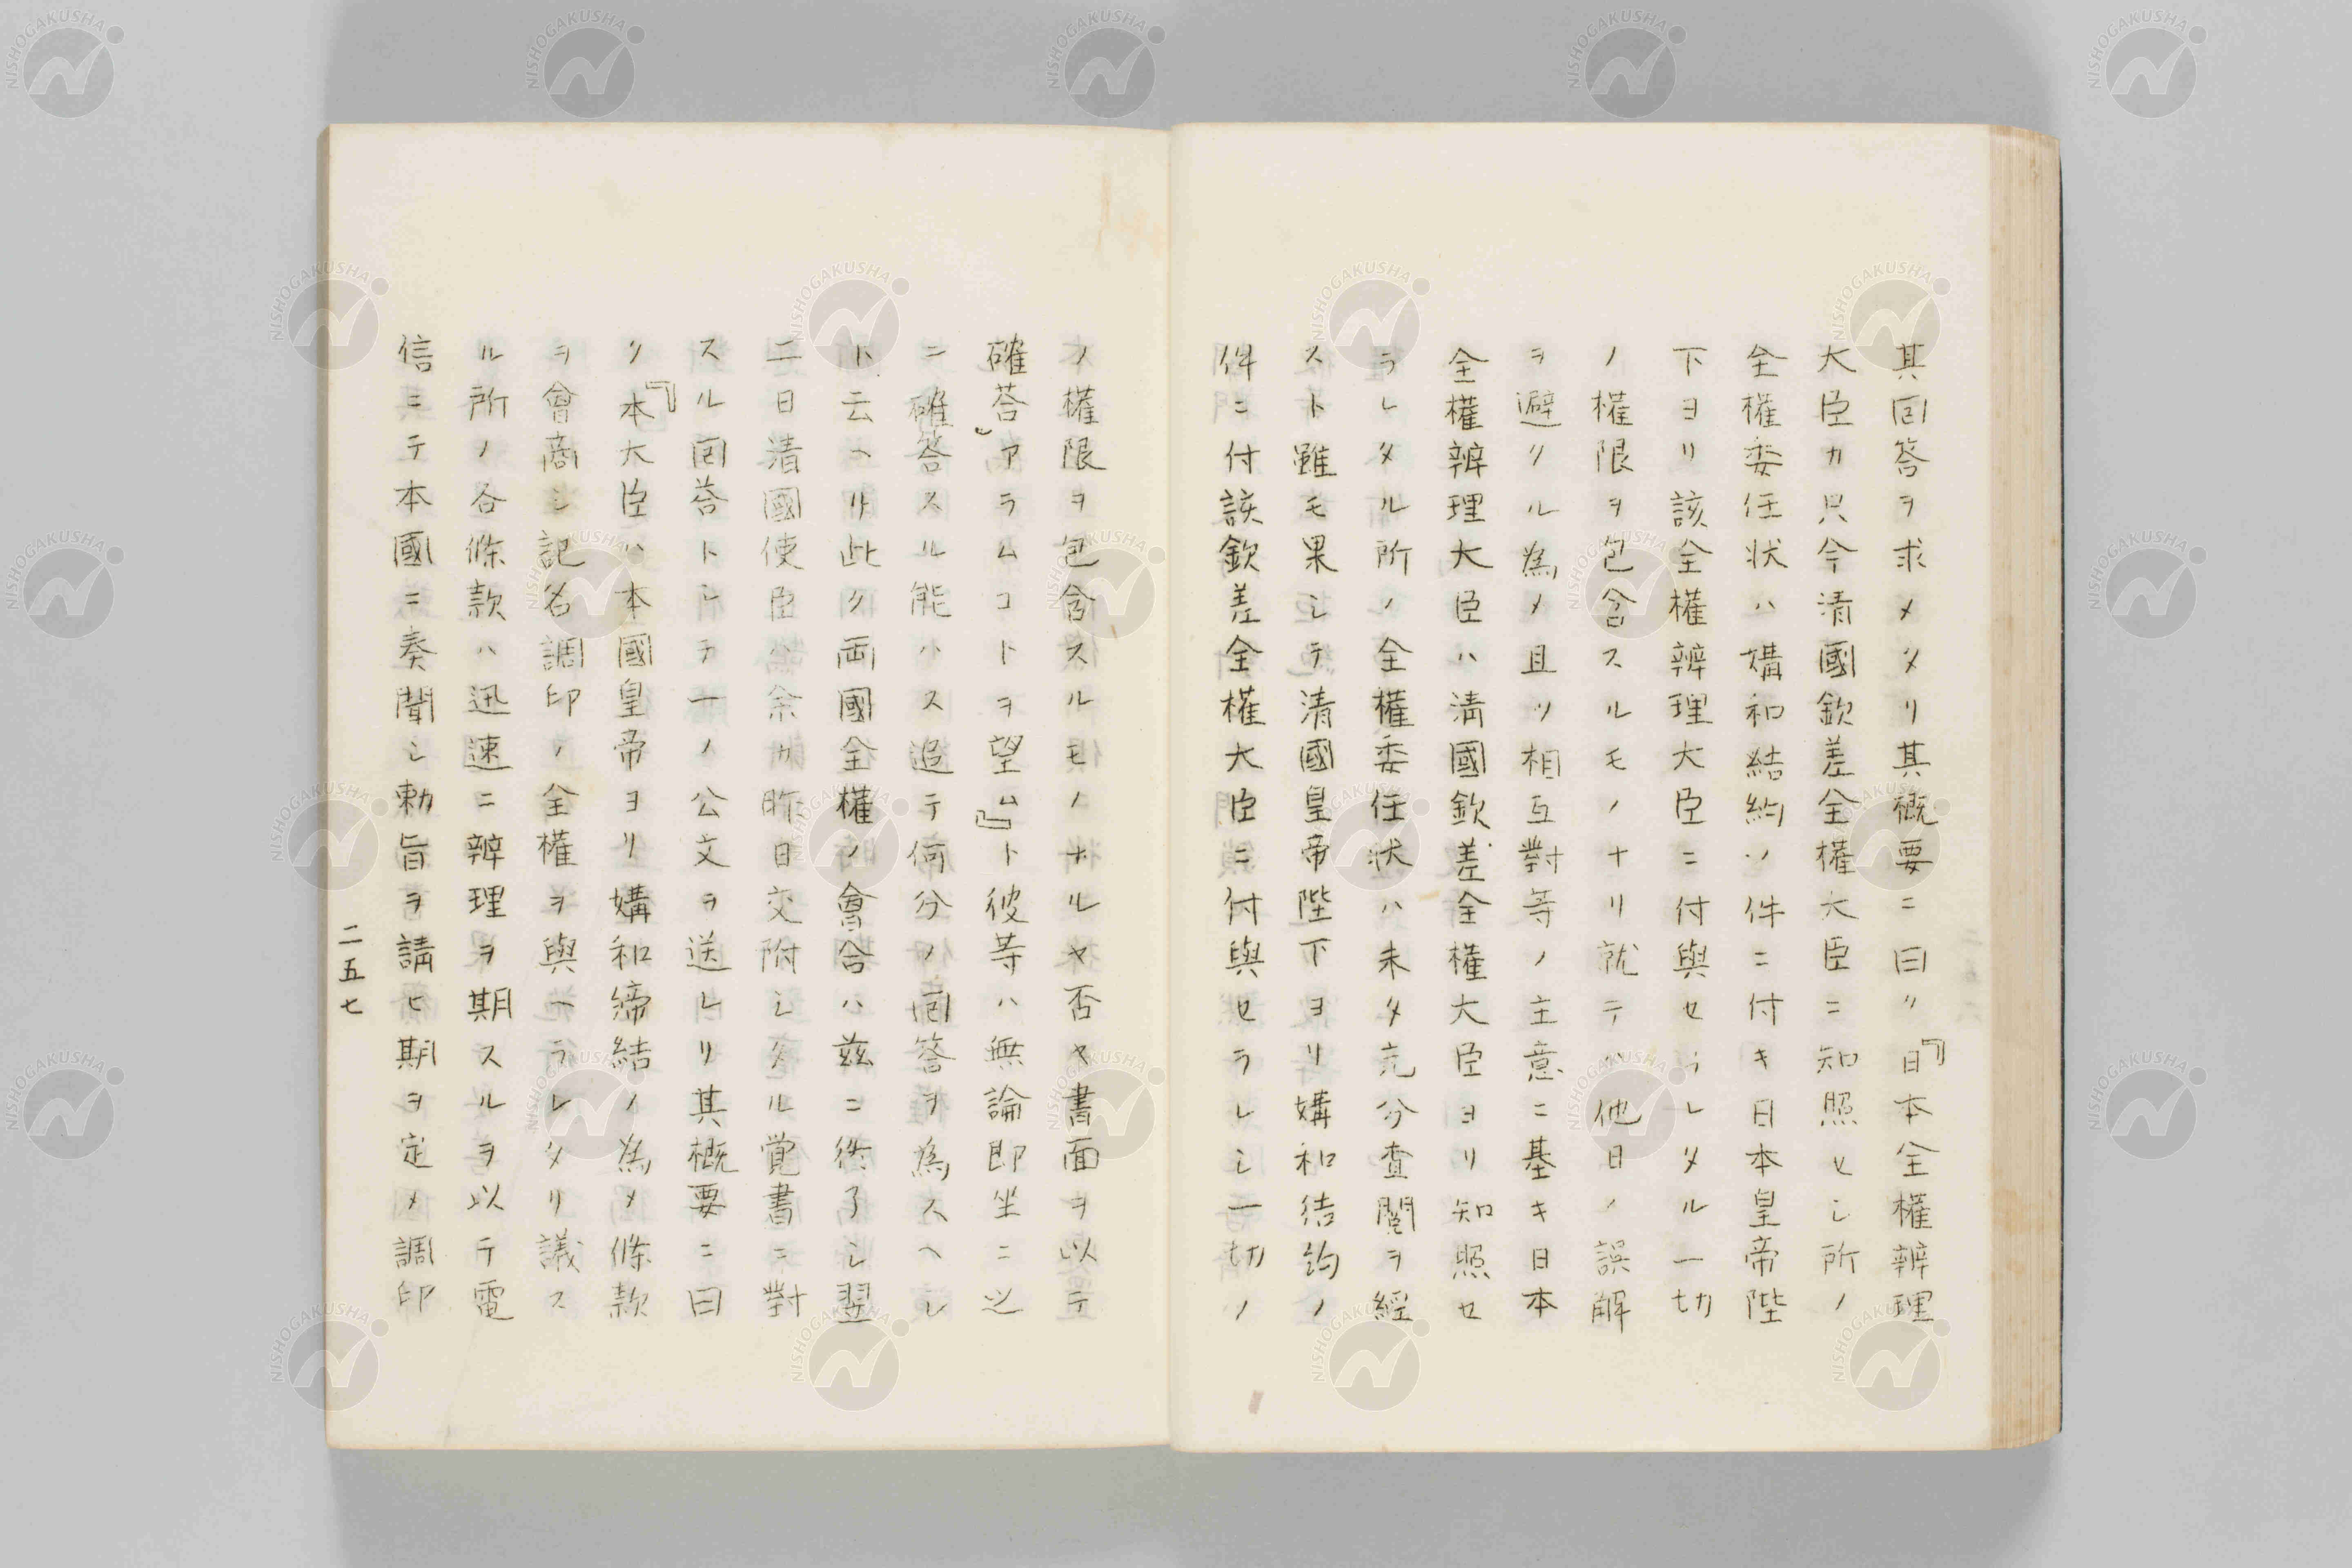 其回答ヲ求メタリ其概要ニ曰ク『日本全權辨理
大臣カ只今清國欽差全權大臣ニ知照セシ所ノ
全權委任状ハ媾和結約ノ件ニ付キ日本皇帝陛
下ヨリ該全權辨理大臣ニ付與セラレタル一切
ノ權限ヲ包含スルモノナリ就テハ他日ノ誤解
ヲ避クル為メ且ツ相互對等ノ主意ニ基キ日本
全權辨理大臣ハ清國欽差全權大臣ヨリ知照セ
ラレタル所ノ全權委任状ハ未タ充分査閲ヲ經
スト雖モ果シテ清國皇帝陛下ヨリ媾和結約ノ
件ニ付該欽差全權大臣ニ付與セラレシ一切ノ
ノ權限ヲ包含スルモノナルヤ否ヤ書面ヲ以テ
確荅アラムコトヲ望ム』ト彼等ハ無論即坐ニ之
ニ確答スル能ハス追テ何分ノ囘答ヲ為スヘシ
ト云ヘリ此ク両國全權ノ會合ハ茲ニ終了シ翌
二日清國使臣ハ余カ昨日交附シタル覚書ニ對
スル囘荅トシテ一ノ公文ヲ送レリ其概要ニ曰
ク『本大臣ハ本國皇帝ヨリ媾和締結ノ為メ條款
ヲ會商シ記名調印ノ全權ヲ與ヘラレタリ議ス
ル所ノ各條款ハ迅速ニ辨理ヲ期スルヲ以テ電
信ニテ本國ニ奏聞シ勅旨ヲ請ヒ期ヲ定メ調印
二五七
NISHOGAKUSHA